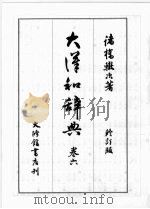 諸橋轍次著
大漢和辭典
卷六
修訂版
大修館書店刊